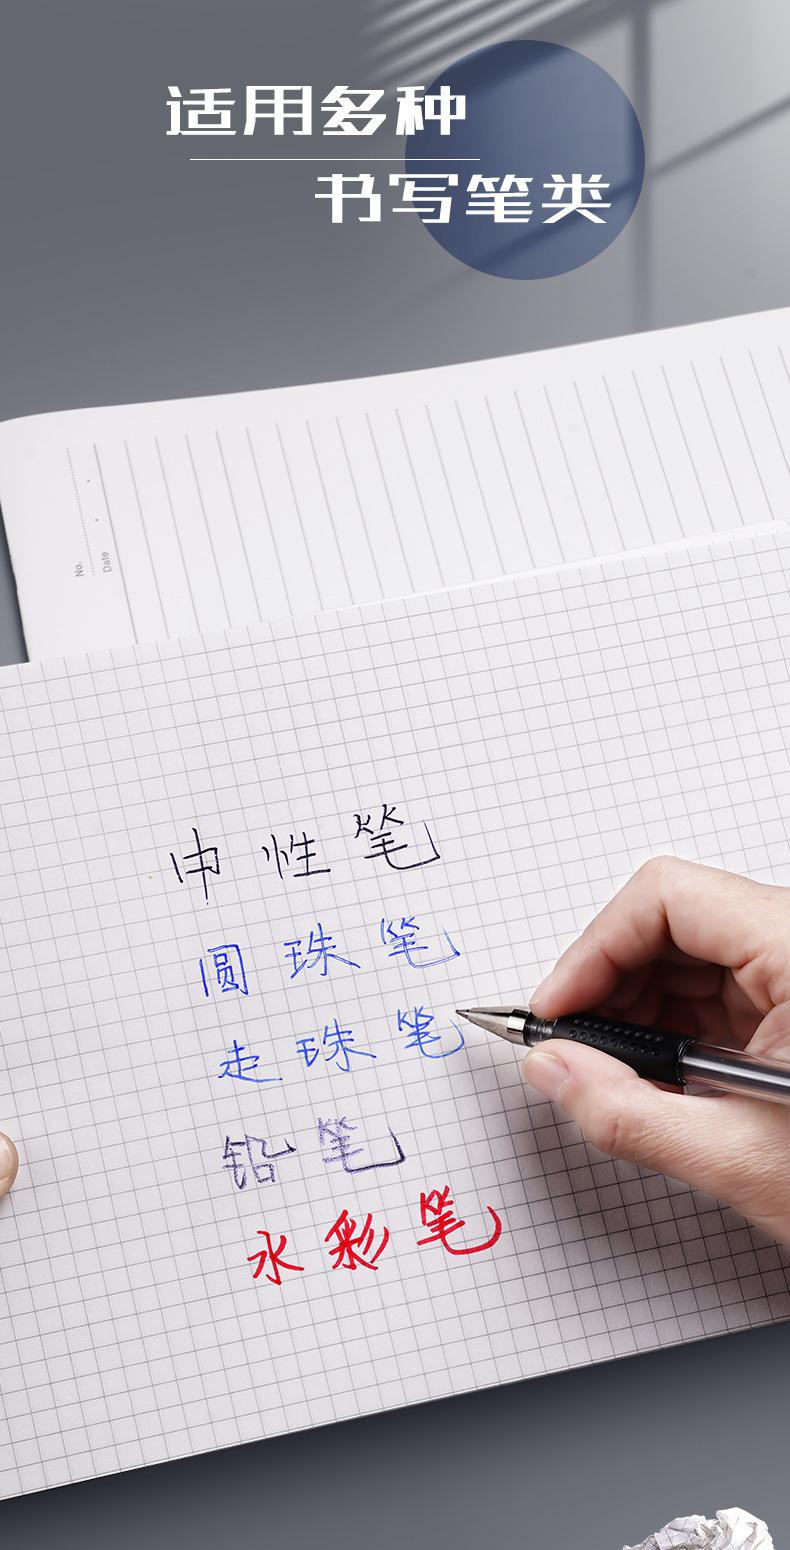 适用多种
书写笔类
No.
Date
中性笔
圆珠笔
走珠笔
铅笔
水彩笔